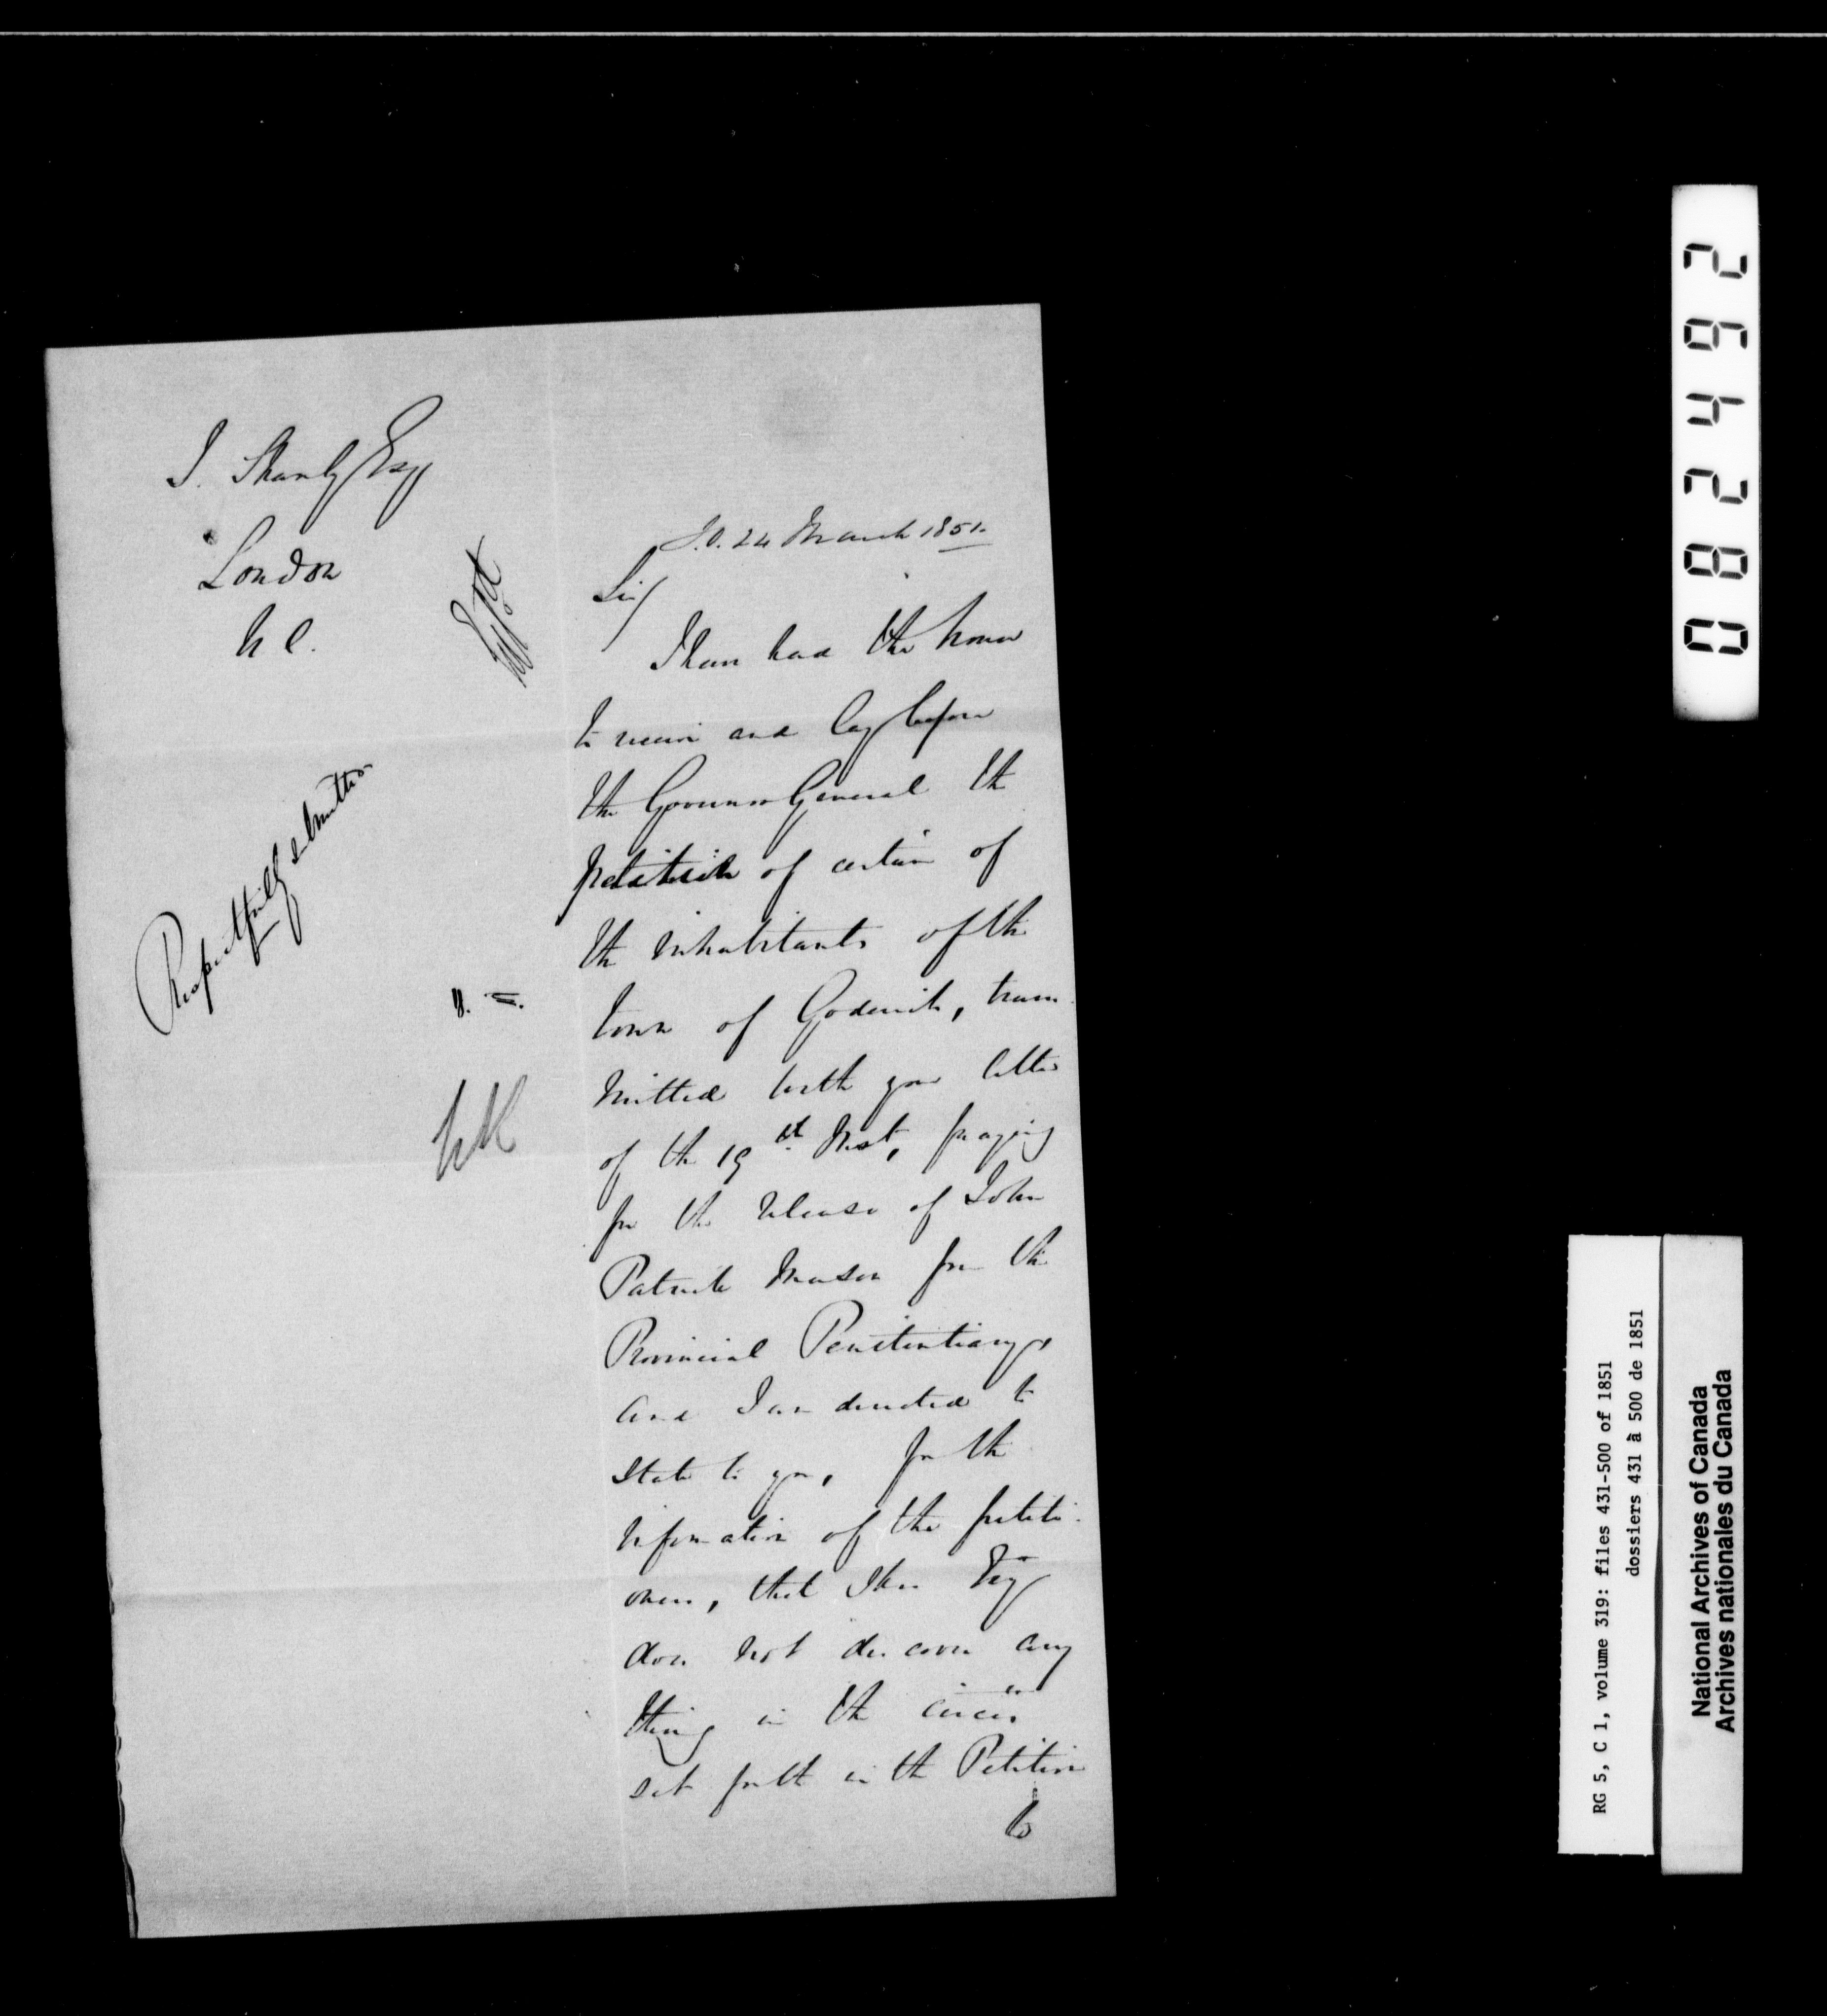 J. Shanly Esqr
London
U C.
Respectfully submitted
S.O. 24 March 1851.
Sir/
I have had the honor
to receive and lay before
the Governor General the
petition of certain of
the inhabitants of the
town of Goderich, trans
mitted with your letter
of the 19th Inst, praying
for the release of John
Patrick Mason from the
Provincial Penitentiary,
and I am directed to
state to you, for the
information of the petiti-
oners, that His Exy
does not discover any
thing in the circes
set forth in the Petition
to
082492
RG 5, C 1, volume 319: files 431-500 of 1851
dossiers 431 à 500 de 1851
National Archives of Canada
Archives nationales du Canada